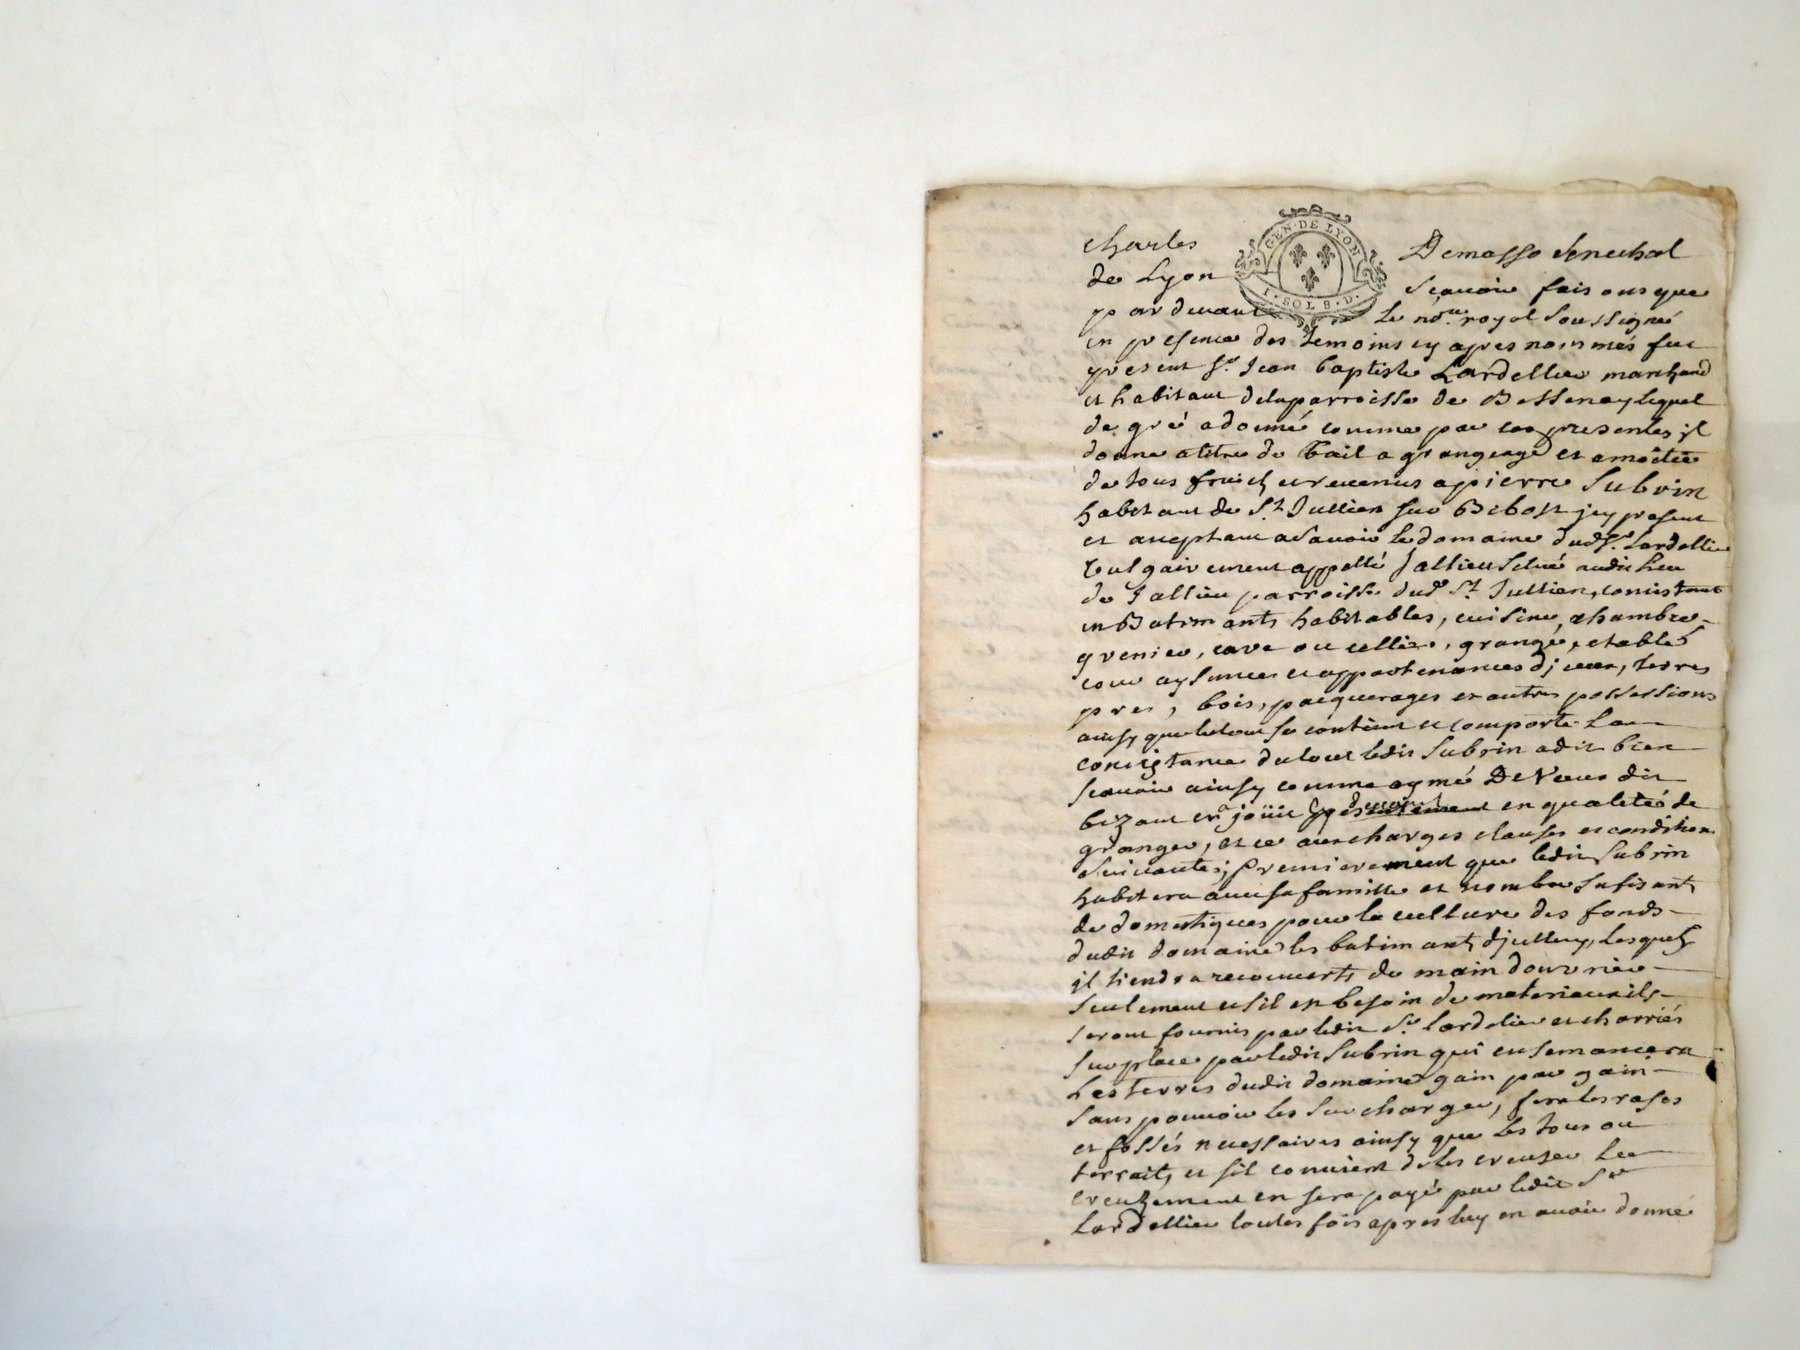 Charles Demasso Senechal
GEN · DE LYON
de Lyon Scavoir faisons que
I · SOL 8 · D ·
pardevant Le no.re royal Soussigné
en presence des temoins cy apres nommés fut
present S.r Jean baptiste Lardellier marchand
et habitant delaparroisse de Bessenay lequel
de gré adonné comme par ces presentes il
donne atitre de bail a grangeage et amoitié
de tous fruits et revenus apierre Subrin
habitant de S.t Jullien sur Bibost jcy present
et acceptant ascavoir le domaine dud S.r Lardellier
vulgairement appellé Jallieu Scitué audit lieu
de Jallieu parroisse dud S.t Jullien, consistant
en Batimants habitables, cuisine, chambre
grenier, cave ou cellier, grange, etables
cour aysances et appartenances djceux, terres
pres, bois, paquerages et autres possessions
ainsy que letout se contient et comporte La
consistance dutout ledit Subrin adit bien
scavoir ainsy comme aymé De Veaux dit
bezant en a joüit cy devant en qualité de
granger, et ce aux charges clauses et conditions
Suivantes; Premierement que ledit Subrin
habitera avec sa famille et nombre sufisant
de domestiques pour la culture des fonds
dudit domaine les batimants djcelluy, lesquels
il tiendra recouverts de main douvrier
seulement et sil est besoin de materiaux ils
seront fournis par ledit S.r Lardelier et charriés
sur place par ledit Subrin qui ensemancera
Les terres dudit domaine gain par gain
sans pouvoir les surcharger, fera les rases
et fossés necessaires ainsy que les tous ou
terraits, et sil convient de les creuzer Le
creuzement en sera payé par ledit S.r
Lardellier toutes fois apres luy en avoir donné